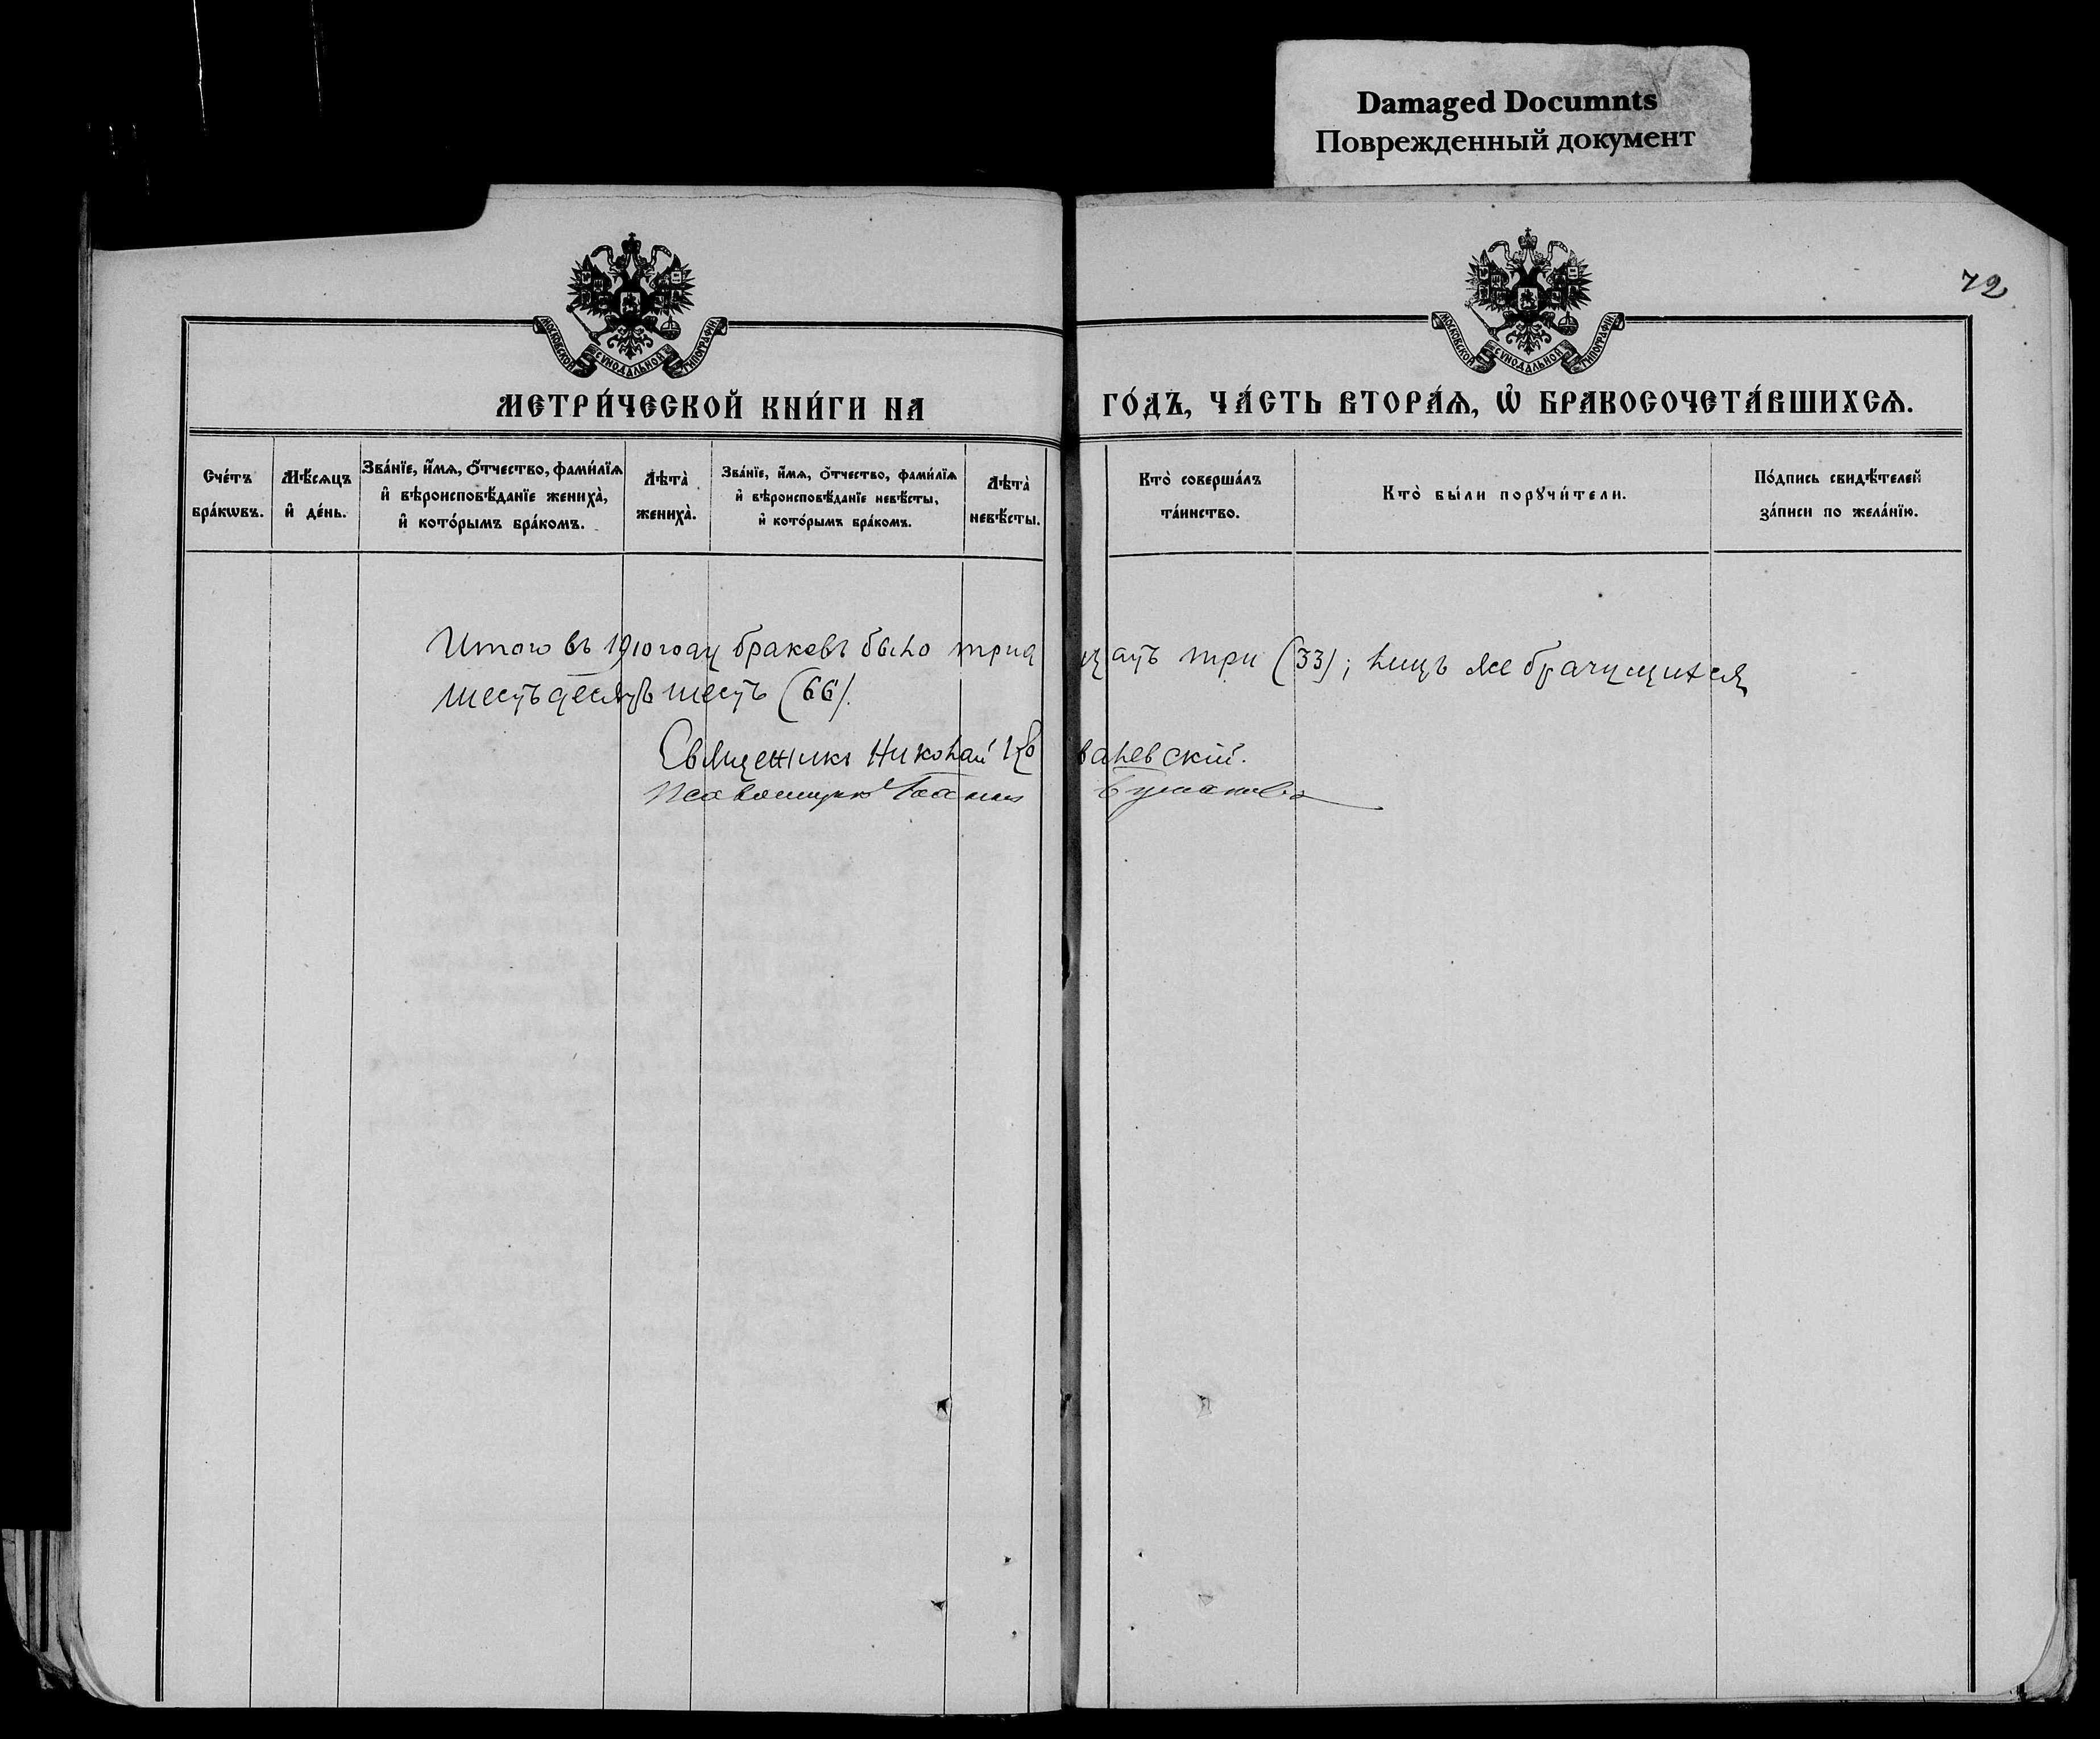 Damaged Documnts
Поврежденный документ
72
МОСКОВСКОЙ СѴНОДАЛЬНОЙ ТИПОГРАФІИ.
МОСКОВСКОЙ СѴНОДАЛЬНОЙ ТИПОГРАФІИ.
МЕТРИ́ЧЕСКОЙ КНИ́ГИ НА ГО́ДЪ, ЧА́СТЬ ВТОРА́Ѧ, Ѡ҆ БРАКОСОЧЕТА́ВШИХСѦ.
Сче́тъ
бра́кѡвъ.
Мѣ́сѧцъ
и҆ де́нь.
Зва́нїе, и҆́мѧ, ѻ҆́тчество, фами́лїѧ
и҆ вѣроисповѣ́данїе жениха̀,
и҆ кото́рымъ бра́комъ.
Лѣта̀
жениха̀.
Зва́нїе, и҆́мѧ, ѻ҆́тчество, фами́лїѧ
и҆ вѣроисповѣ́данїе невѣ́сты,
и҆ кото́рымъ бра́комъ.
Лѣта̀
невѣ́сты.
Кто̀ соверша́лъ
та́инство.
Кто̀ бы́ли порꙋчи́тели.
По́дпись свидѣ́телей
за́писи по жела́нїю.
Итого въ 1910 году браковъ было тридцать три (33); лицъ же брачущихся
шестьдесятъ шесть (66).
Священникъ Николай
Псаломщикъ Іоаннъ